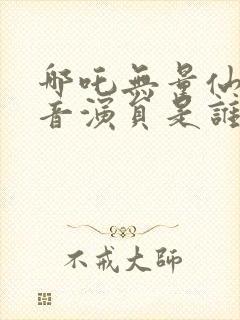 哪吒無量仙
音演員是誰
不戒大師